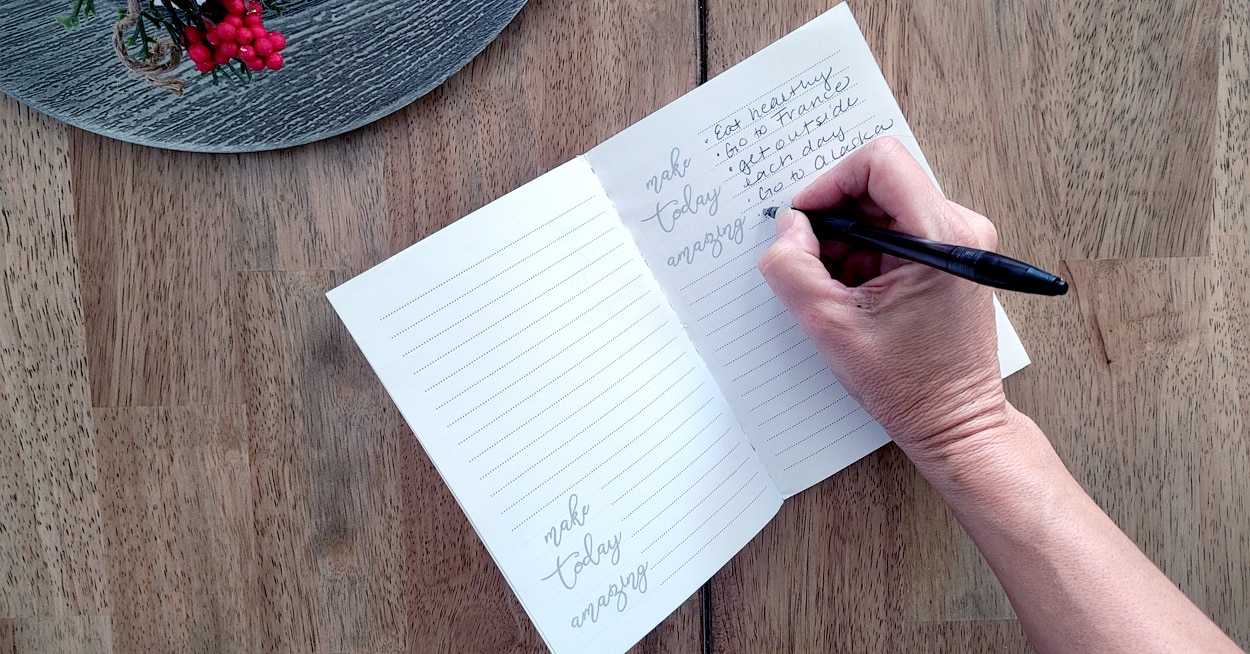 make
today
amazing
• Eat healthy
• Go to France
• get outside
each day
• Go to Alaska
•
make
today
amazing